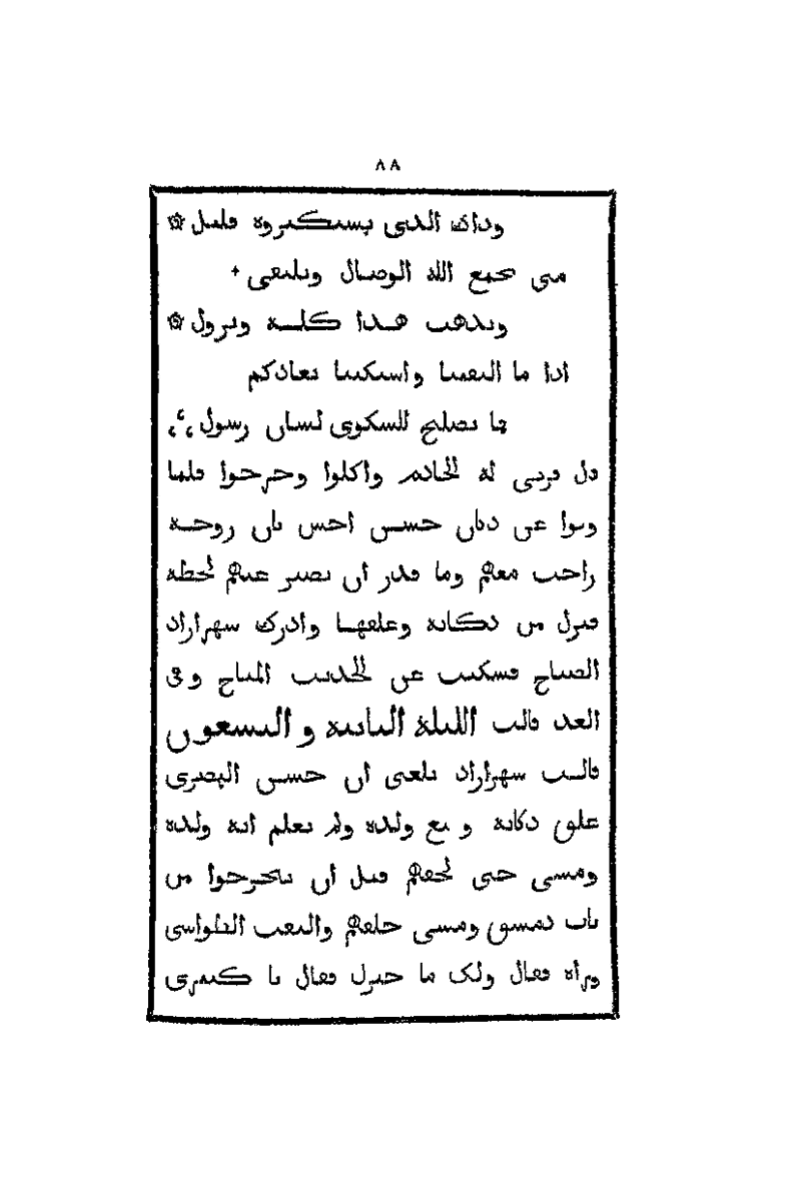 ٨٨
وذاك الذى يستكثروه قليل ۞
متى يجمع الله الوصال ونلتقى +
ويذهب هذا كله ويزول ۞
اذا ما التقينا واشتكينا بعادكم
فما تصلح للشكوى لسان رسول
قال فرثى له الخادم واكلوا وخرجوا فلما
ونوا عن دكان حسن احس بان روحه
راحت معهم وما قدر ان يصبر عنهم لحظه
فنزل من دكانه وغلقها وادرك شهرازاد
الصباح فسكتت عن الحديث المباح وفى
الغد قالت الليلة الثانية والتسعون
قالت شهرازاد بلغنى ان حسن البصرى
غلق دكانه وتبع ولده ولم يعلم انه ولده
ومشى حتى لحقهم قبل ان يخرجوا من
باب دمشق ومشى خلفهم والتفت الطواشى
وراه فقال ولك ما خبرك فقال يا كبيرى